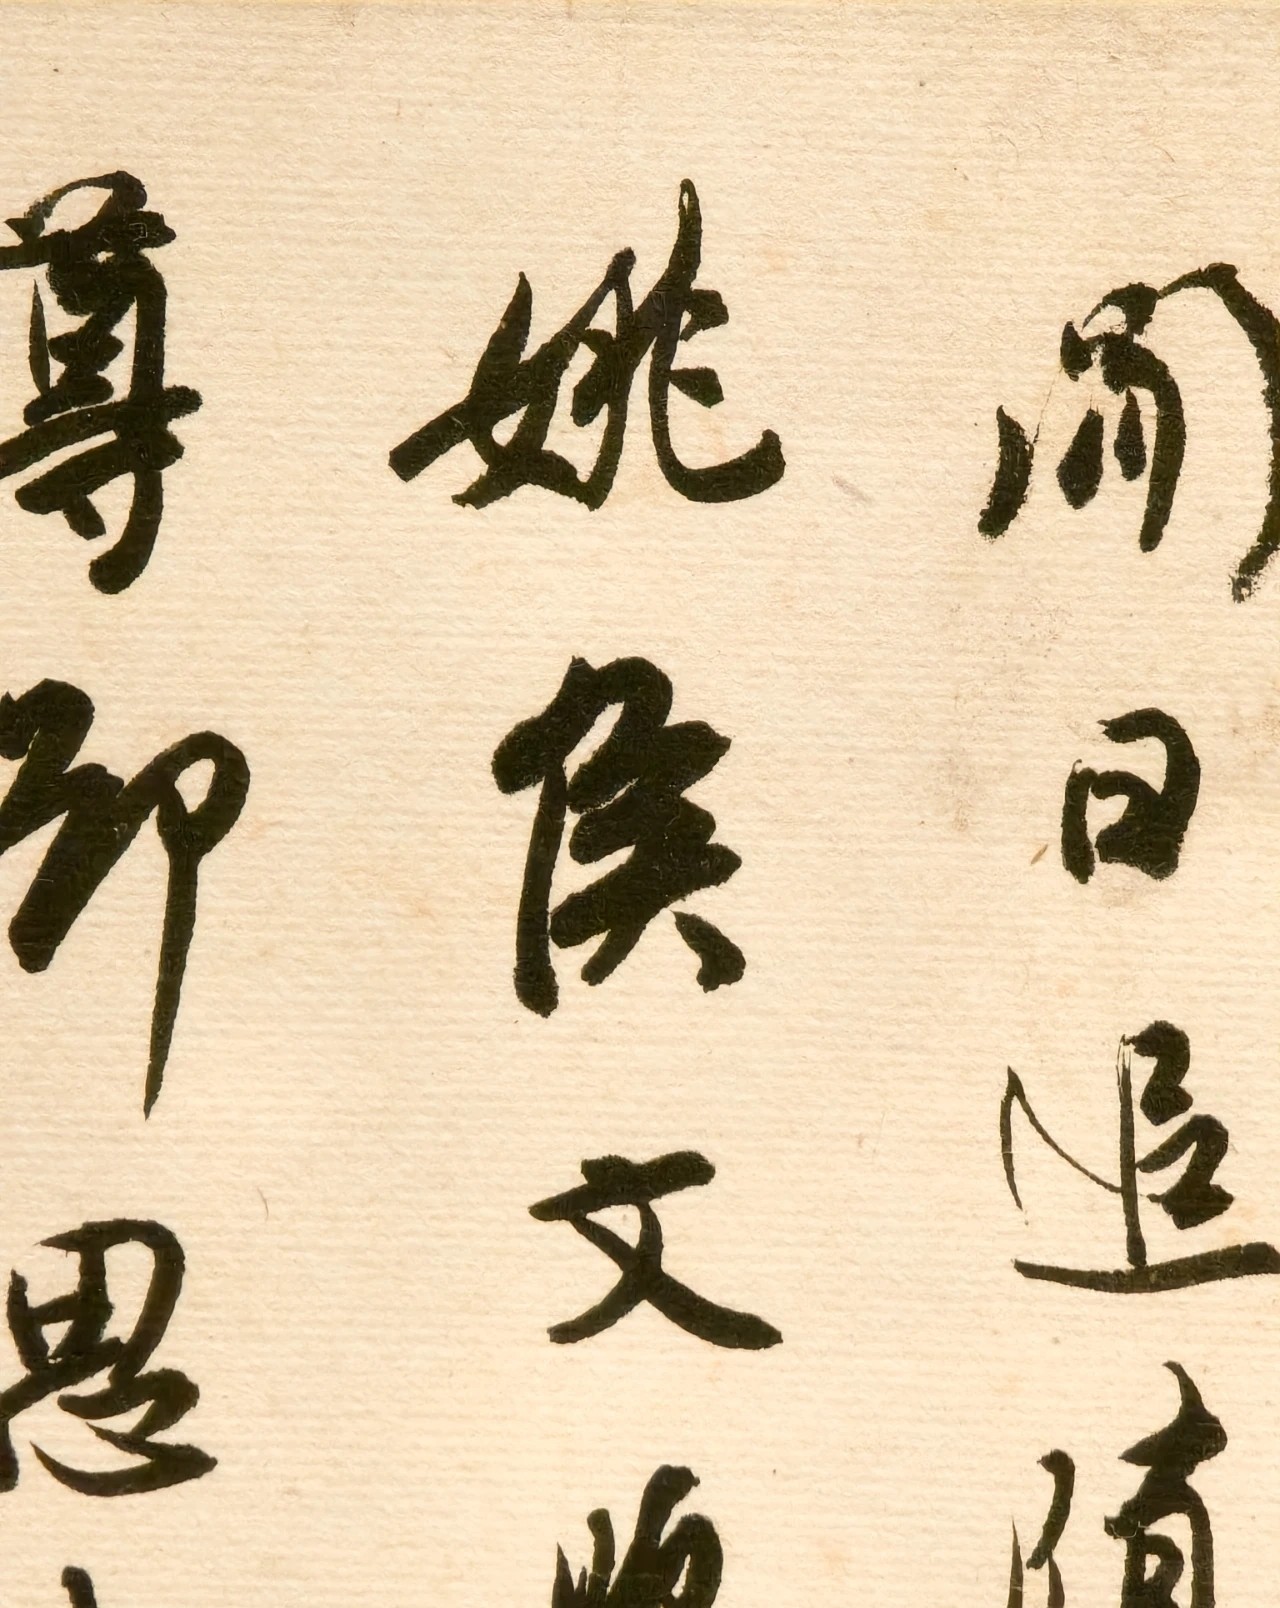 閒日追隨
姚侯文
尊即思